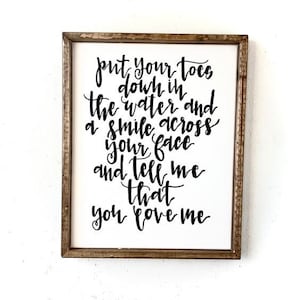 put your toes
down in
the water and
a smile across
your face
and tell me
that
you love me